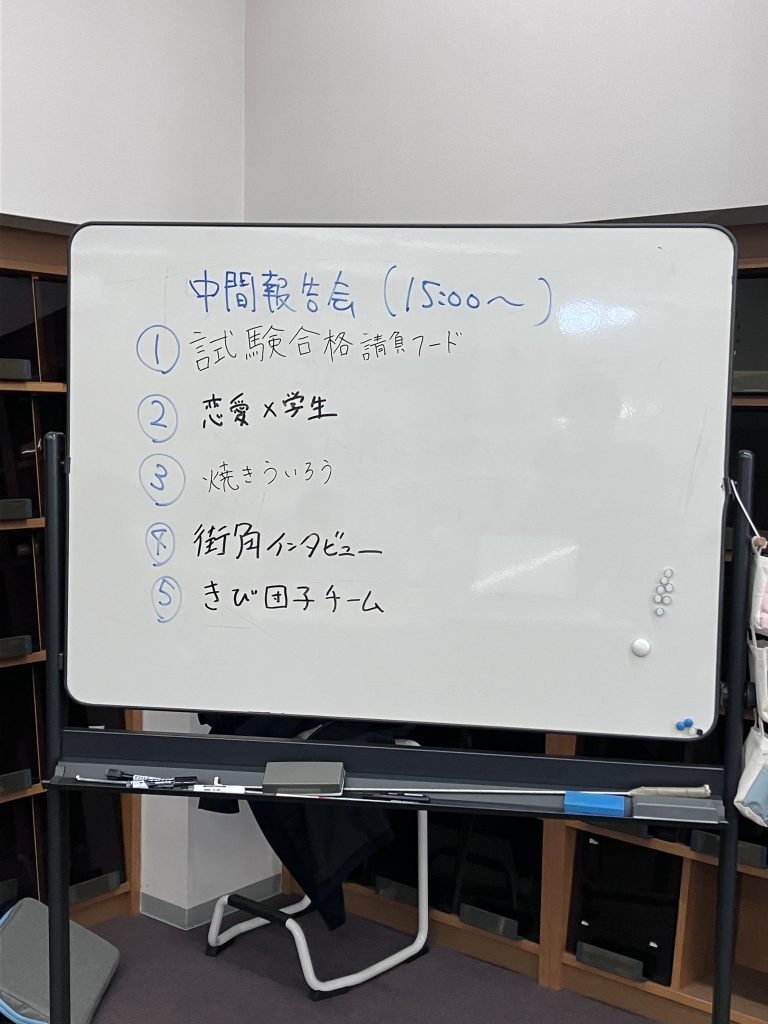 中間報告会（15:00〜）
① 試験合格請負フード
② 恋愛×学生
③ 焼きういろう
④ 街角インタビュー
⑤ きび団子チーム